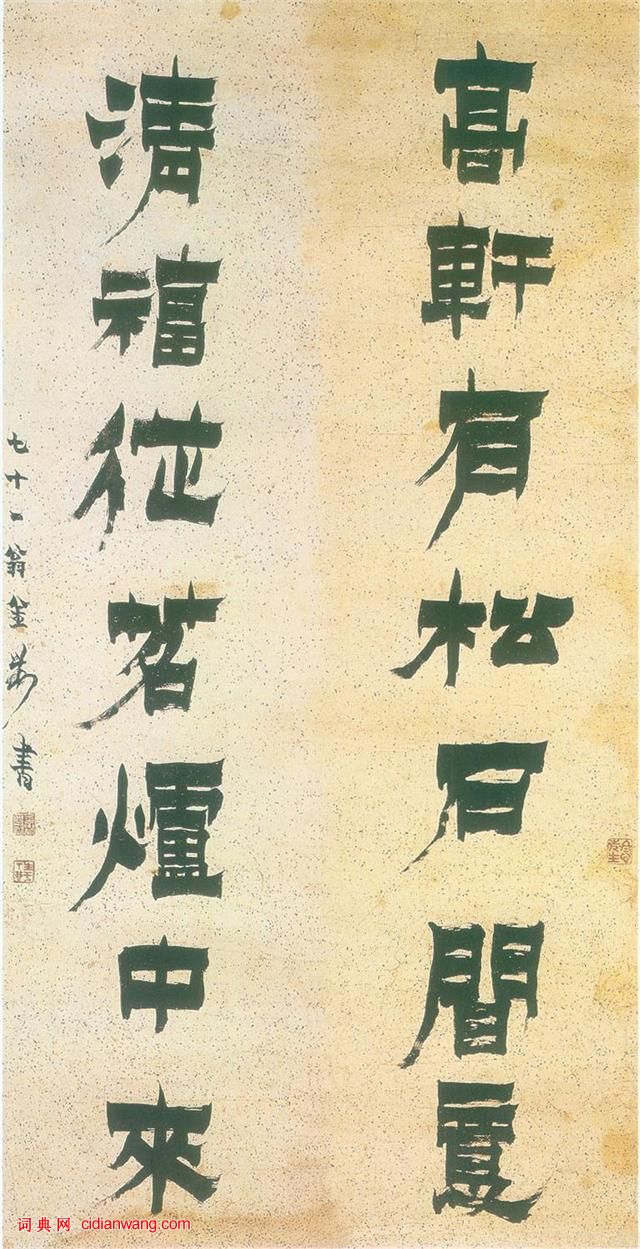 高軒有松石間
清福從茗爐中來
七十二翁金農書
词典网 cidianwang.com